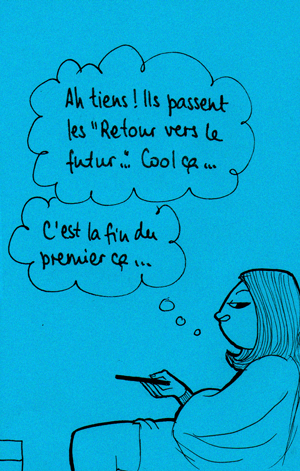 Ah tiens! Ils passent
les "Retour vers le
futur..." Cool ça...
C'est la fin du
premier ça...